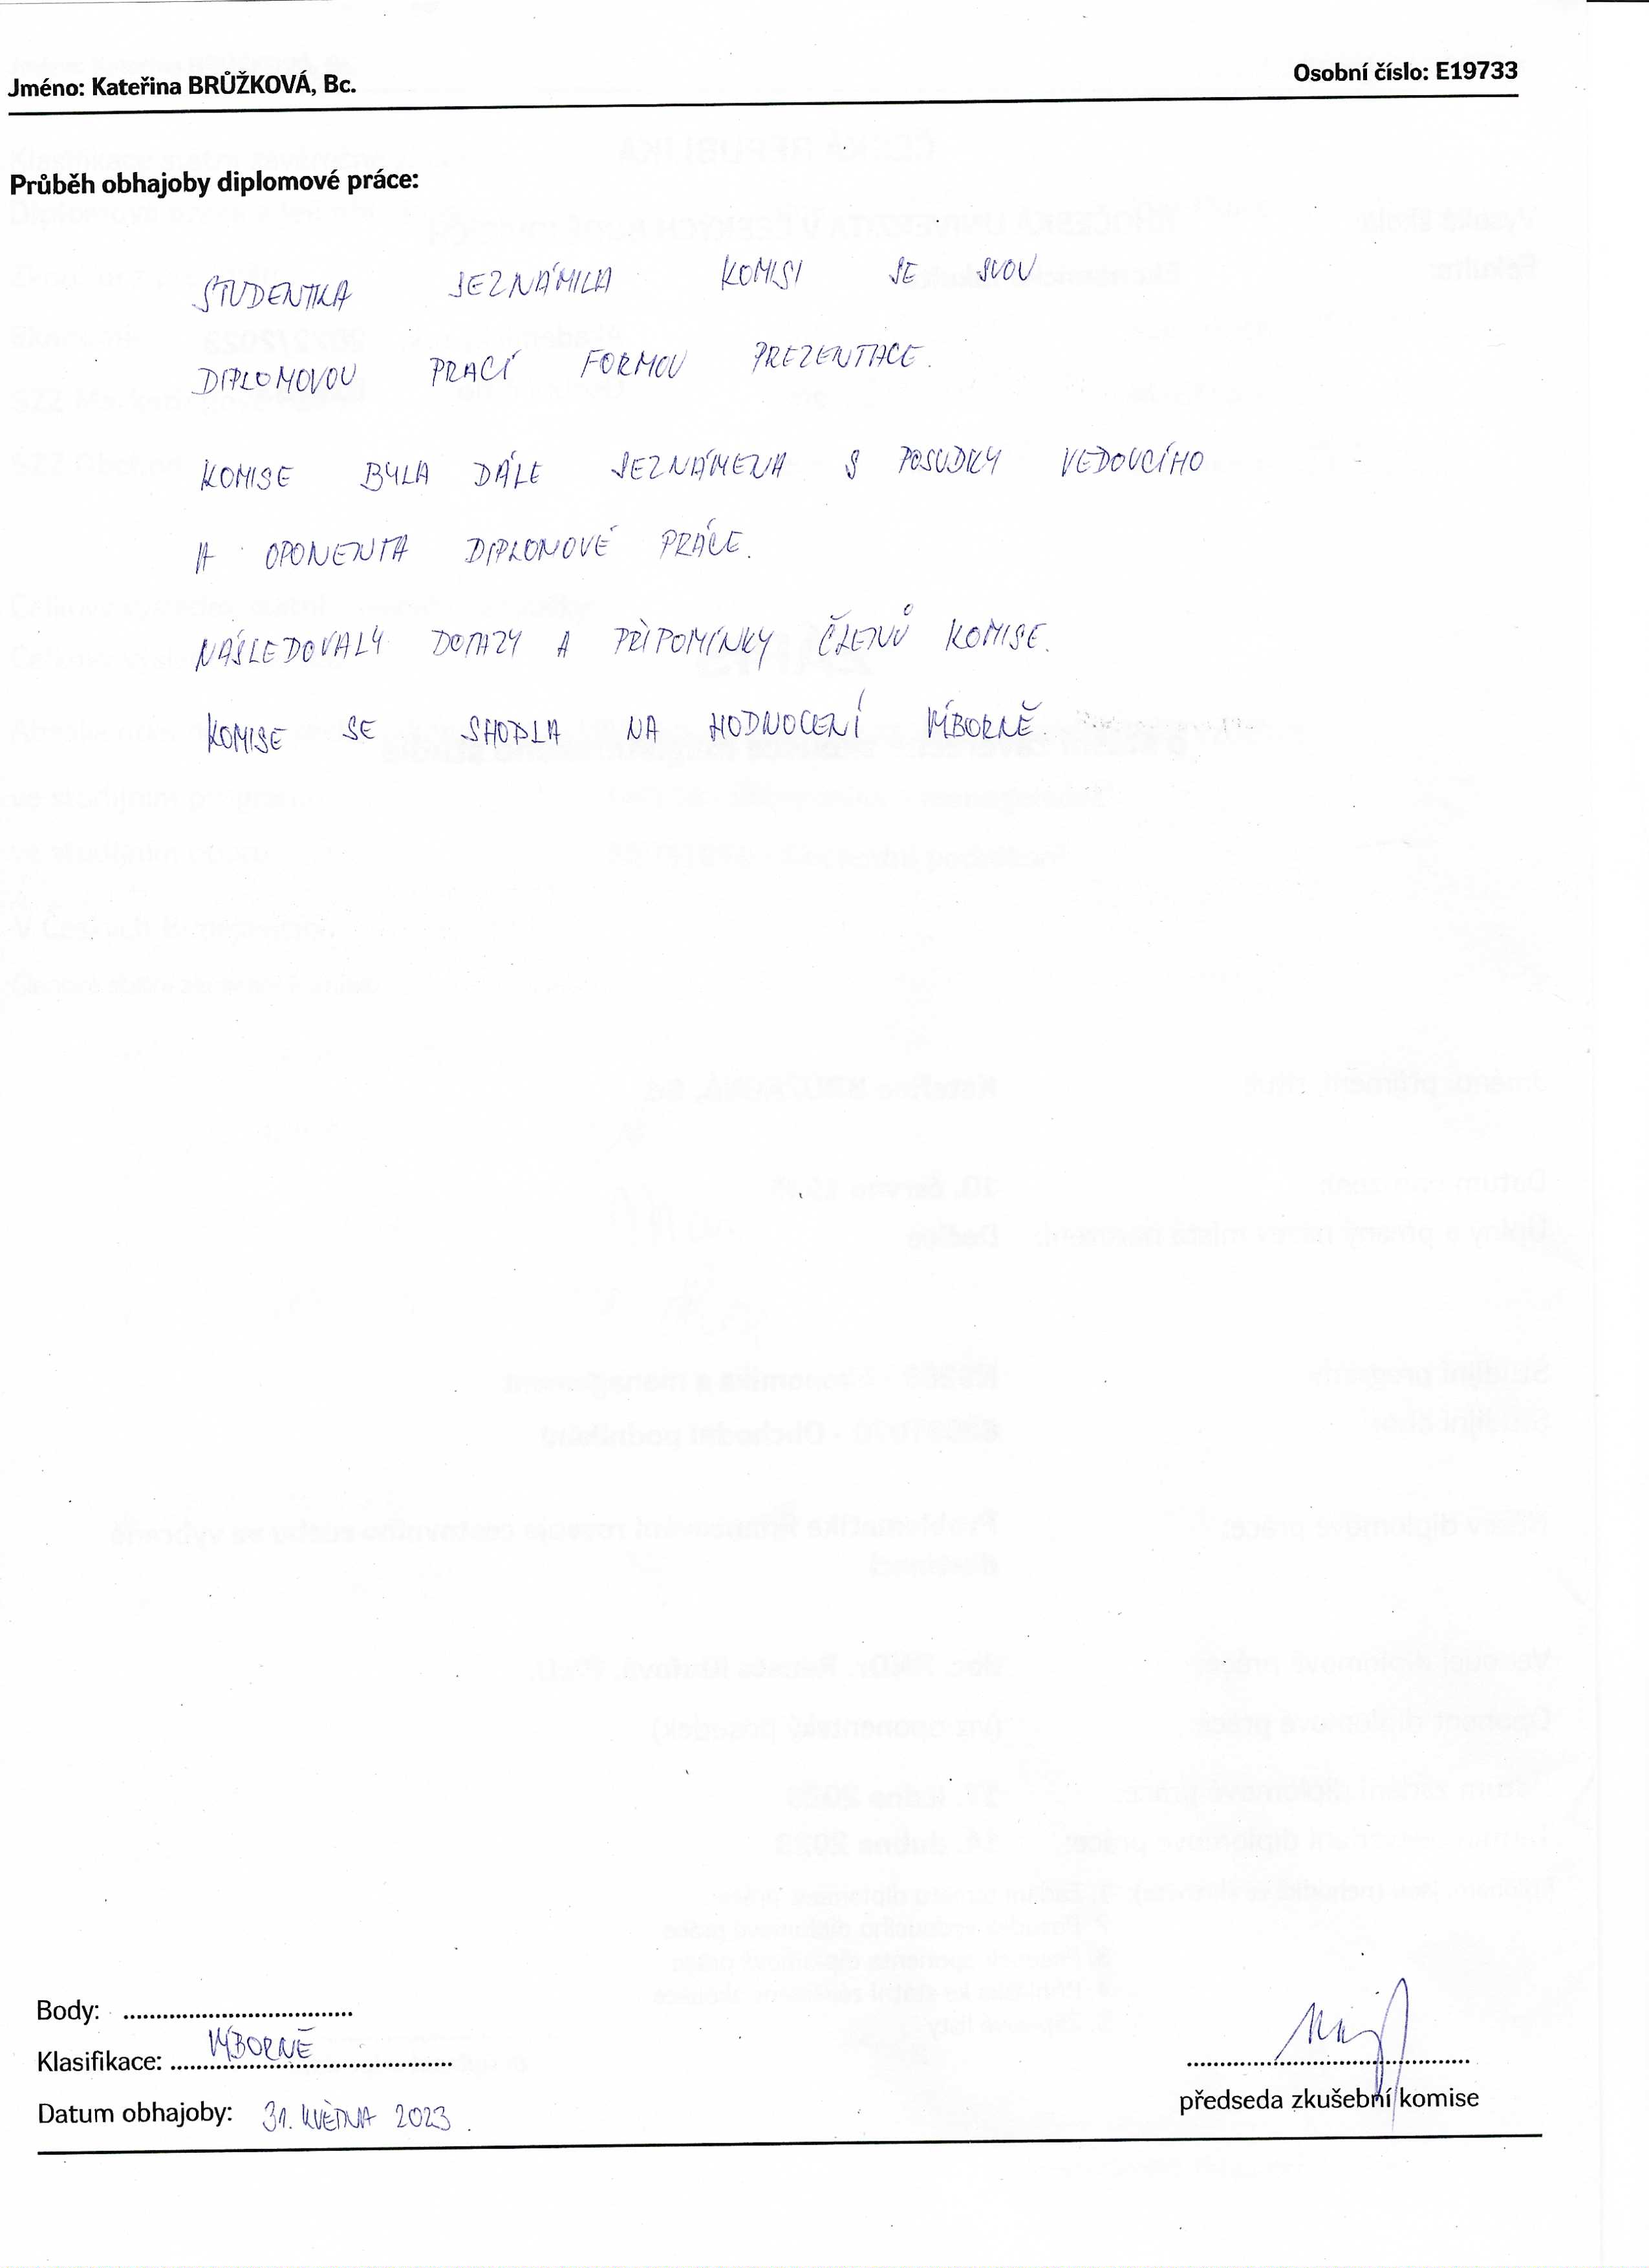 Jméno: Kateřina BRŮŽKOVÁ, Bc. Osobní číslo: E19733
Průběh obhajoby diplomové práce:
STUDENTKA SEZNÁMILA KOMISI SE SVOU
DIPLOMOVOU PRACÍ FORMOU PREZENTACE.
KOMISE BYLA DÁLE SEZNÁMENA S POSUDKY VEDOUCÍHO
A OPONENTA DIPLOMOVÉ PRÁCE.
NÁSLEDOVALY DOTAZY A PŘIPOMÍNKY ČLENŮ KOMISE.
KOMISE SE SHODLA NA HODNOCENÍ VÝBORNĚ
Body: ................................
Klasifikace: VÝBORNĚ
Datum obhajoby: 31. KVĚTNA 2023.
předseda zkušební komise